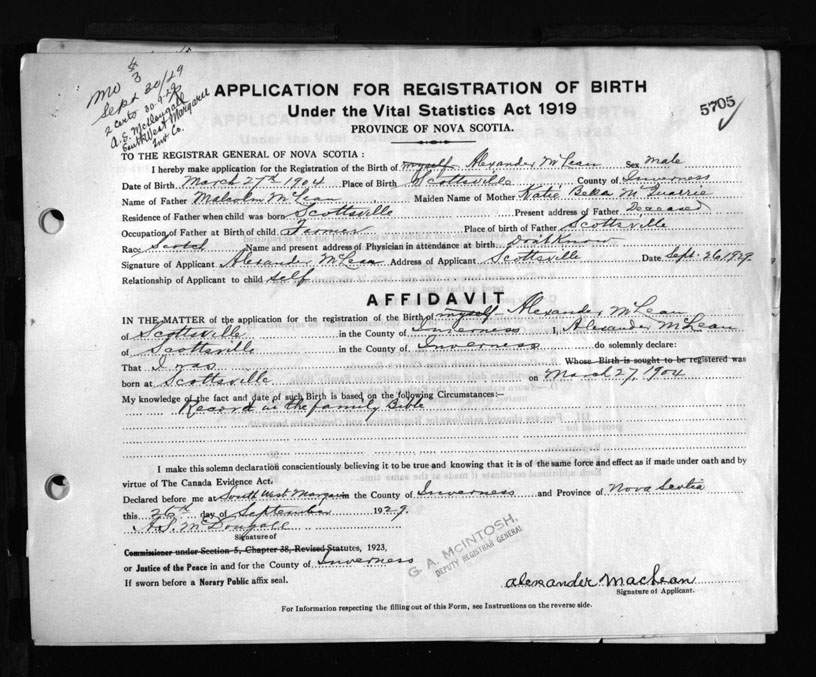 MO 4/3
Sept 30/29
2 certs 30-9-29
A. S. McDougall
South West Margaree
Inv Co.
APPLICATION FOR REGISTRATION OF BIRTH
Under the Vital Statistics Act 1919
PROVINCE OF NOVA SCOTIA.
5705
TO THE REGISTRAR GENERAL OF NOVA SCOTIA :
I hereby make application for the Registration of the Birth of myself Alexander McLean Sex Male
Date of Birth March 27th 1904 Place of Birth Scottsville County of Inverness
Name of Father Malcolm McLean Maiden Name of Mother Katie Bella McQuarrie
Residence of Father when child was born Scottsville Present address of Father Deceased
Occupation of Father at Birth of child Farmer Place of birth of Father Scottsville
Race Scotch Name and present address of Physician in attendance at birth Don't Know
Signature of Applicant Alexander McLean Address of Applicant Scottsville Date Sept. 26 1929.
Relationship of Applicant to child self
AFFIDAVIT
IN THE MATTER of the application for the registration of the Birth of myself Alexander McLean
of Scottsville in the County of Inverness I, Alexander McLean
of Scottsville in the County of Inverness do solemnly declare:
That I was Whose Birth is sought to be registered was
born at Scottsville on March 27, 1904
My knowledge of the fact and date of such Birth is based on the following Circumstances:—
Record in the family Bible
I make this solemn declaration conscientiously believing it to be true and knowing that it is of the same force and effect as if made under oath and by
virtue of The Canada Evidence Act.
Declared before me at South West Margaree in the County of Inverness and Province of Nova Scotia
this 26th day of September 1929.
A. S. McDougall
Signature of
Commissioner under Section 5, Chapter 38, Revised Statutes, 1923,
or Justice of the Peace in and for the County of Inverness
If sworn before a Notary Public affix seal.
G. A. McINTOSH,
DEPUTY REGISTRAR GENERAL
Alexander MacLean
Signature of Applicant.
For Information respecting the filling out of this Form, see Instructions on the reverse side.